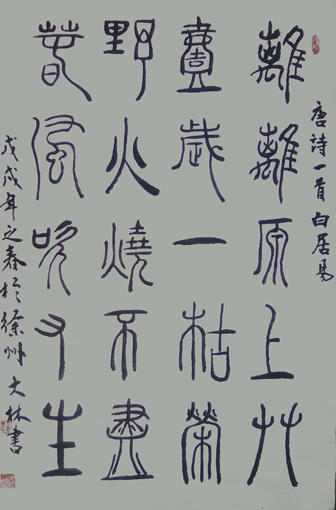 唐詩一首白居易
離離原上艸
壹歲一枯榮
野火燒不盡
萅風吹又生
戊戌年之春於徐州大林書